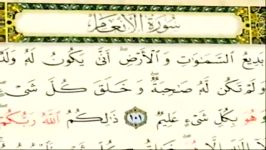 سورة الأنعام
بَدِيعُ السَّمَٰوَٰتِ وَالْأَرْضِ أَنَّىٰ يَكُونُ لَهُ وَلَدٌ
وَلَمْ تَكُن لَّهُ صَٰحِبَةٌ وَخَلَقَ كُلَّ شَيْءٍ
وَهُوَ بِكُلِّ شَيْءٍ عَلِيمٌ ١٠١ ذَٰلِكُمُ اللَّهُ رَبُّكُمْ